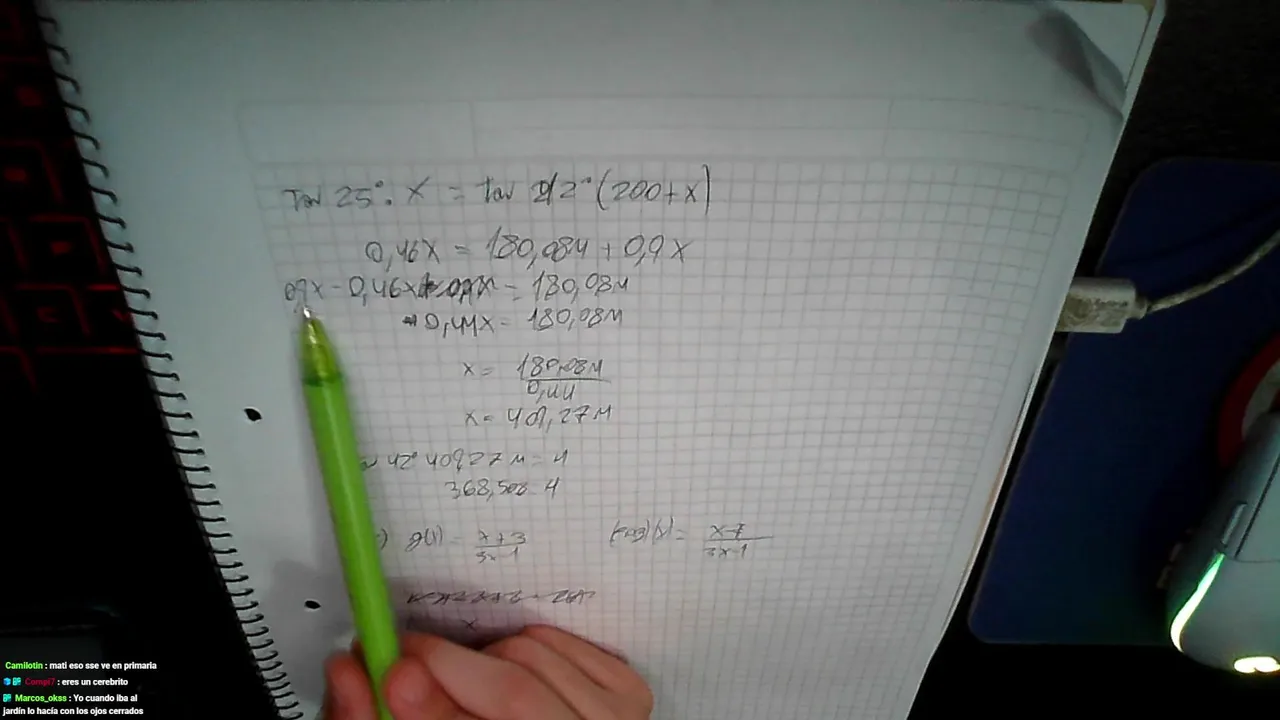 Tan 25°. x = tan 42° (200+x)
0,46x = 180,08M + 0,9x
0,9x - 0,46x = 180,08M
0,44x = 180,08M
x = 180,08M
0,44
x = 409,27M
42° 409,27 M = 4
368,508 4
g(x) = x+3
3x-1
(fog)(x) = x-7
3x-1
x
Camilotin : mati eso sse ve en primaria
Compi7 : eres un cerebrito
Marcos_okss : Yo cuando iba al
jardín lo hacía con los ojos cerrados